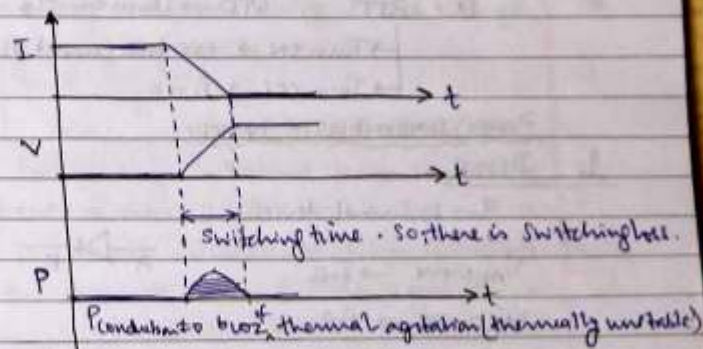 I
t
V
t
switching time. So, there is switching loss.
P
t
Pconduction to bcoz of thermal agitation (thermally unstable)